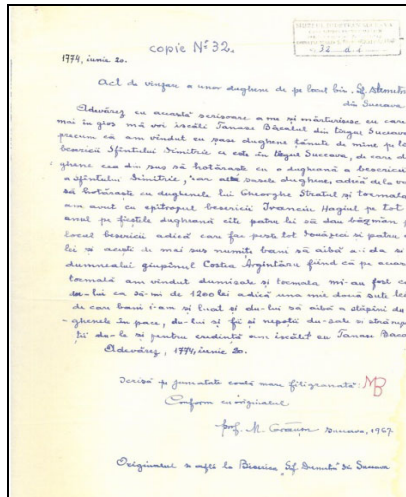 copie Nº 32.
32
1774, iunie 20.
Act de vînzare a unor dughene de pe locul bis. Sf. Dumitru
din Suceava
Adevărez cu această scrisoare a me și mărturisesc cu care
mai în gios mă voi iscăli Tanasă Băcalul din tîrgul Suceava
precum că am vîndut cu șase dughene ținute de mine pe lo
besericii Sfîntului Dimitrie ce este în tîrgul Suceava, de care d
ghene cea din sus să hotărăște cu o dugheană a besericii
a sfîntului Dimitrie, iar altă susele dughene, adică de la va
să hotărăște cu dughenele lui Gheorghe Stratul și tocmala
i-am avut cu epitropul besericii Ivanciu Hagiul pe tot
anul pe fieștele dugheană cîte patru lei să dau bezmăn p
locul besericii adică care fac peste tot douăzeci și patru
lei și acești de mai sus numiți bani să aibă a-i da și
dumnealui giupînul Costea Argintariu fiind că pe aceas
tocmală am vîndut dumisale și tocmala mi-au fost c
du-lui ca să-mi de 1200 lei adică una mie două sute lei
de care bani i-am și luat și du-lui să aibă a stăpîni du
-ghenele în pace, du-lui și fii și nepoții du-sale și strănep
ții du-le și pentru credință am iscălit eu Tanasă Baca
Adevărez, 1774, iunie 20.
Scrisă pe jumătate coală mare filigranată: MB
Conform cu originalul
prof. M. Suceava, 1967
Originalul se află la Biserica Sf. Dumitru din Suceava